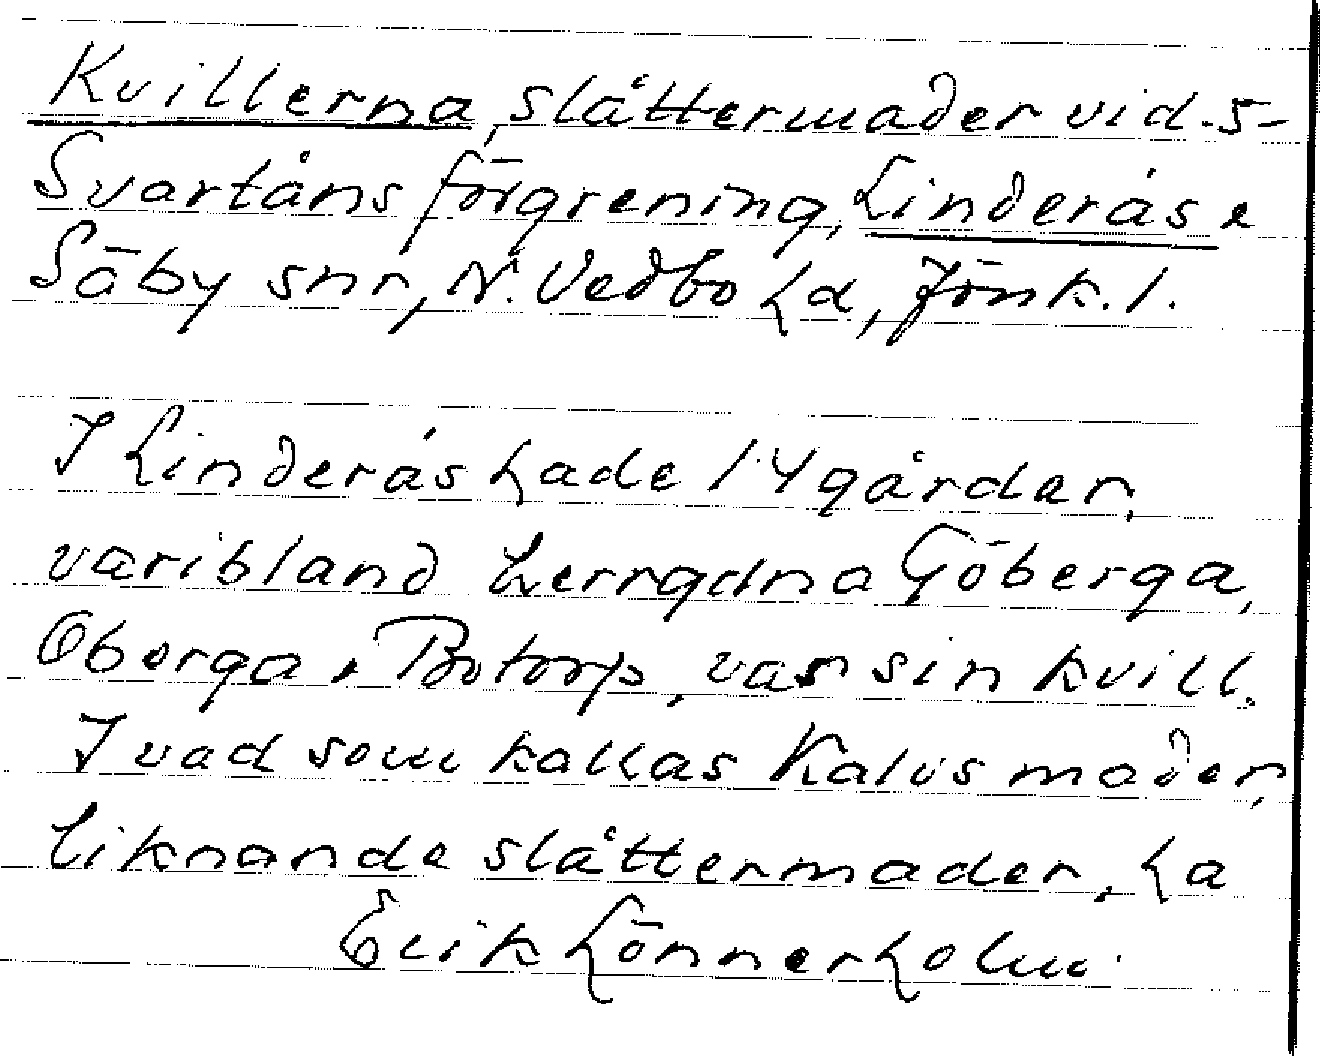 Kvillerna, slåttermader vid s-
Svartåns förgrening, Linderås &
Säby snr, N. Vedbo hd, Jönk. l.
I Linderås hade 14 gårder,
varibland herrgdna Göberga,
Oberga, Botorp, var sin kvill.
I vad som kallas Kalvs mader,
liknande slåttermader, ha
Erik Lönnerholm